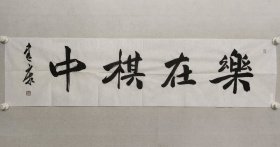 樂在棋中